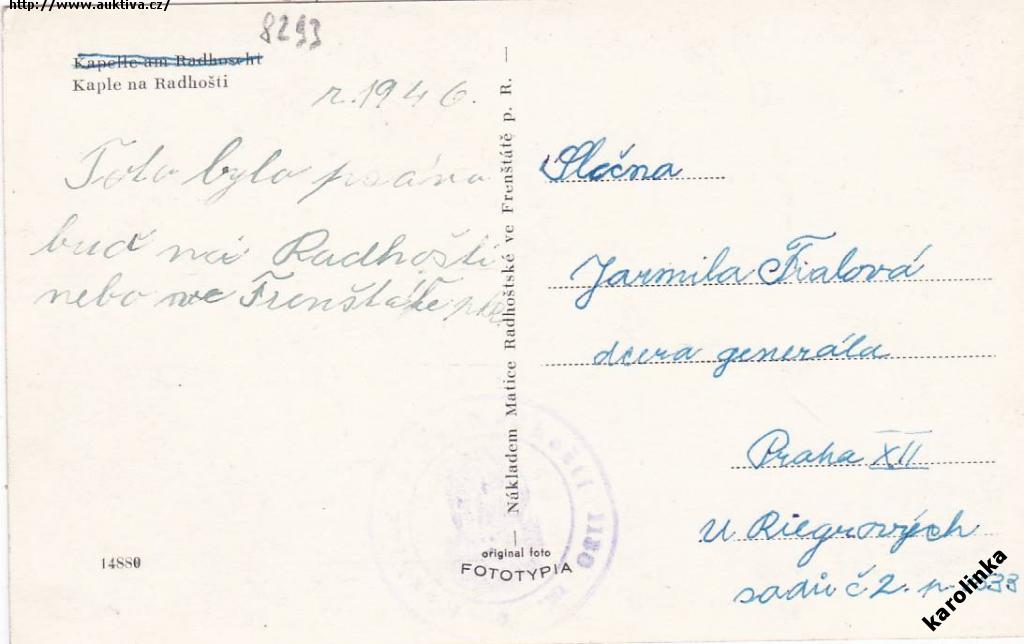 http://www.auktiva.cz/
8293
Kapelle am Radhoscht
Kaple na Radhošti
r. 1946.
Toto bylo psáno
buď na Radhošti
nebo ve Frenštátě p.R.
14880
Nákladem Matice Radhoštské ve Frenštátě p. R.
original foto
FOTOTYPIA
Slečna
Jarmila Fialová
dcera generála
Praha XII
U Riegrových
sadů č 2.
karolinka